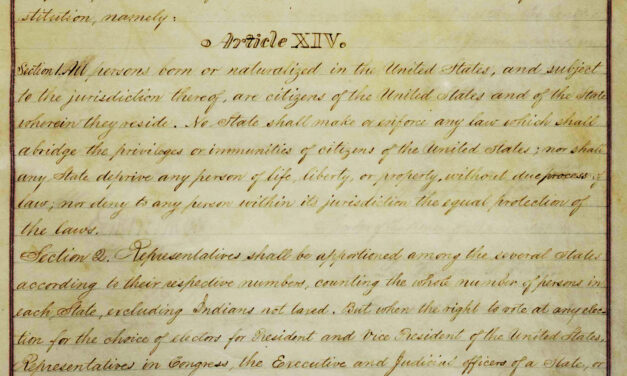 stitution, namely:
Article XIV.
Section 1. All persons born or naturalized in the United States, and subject
to the jurisdiction thereof, are citizens of the United States and of the State
wherein they reside. No State shall make or enforce any law which shall
abridge the privileges or immunities of citizens of the United States; nor shall
any State deprive any person of life, liberty, or property, without due process of
law; nor deny to any person within its jurisdiction the equal protection of
the laws.
Section 2. Representatives shall be apportioned among the several States
according to their respective numbers, counting the whole number of persons in
each State, excluding Indians not taxed. But when the right to vote at any elec-
tion for the choice of electors for President and Vice President of the United States,
Representatives in Congress, the Executive and Judicial officers of a State, or